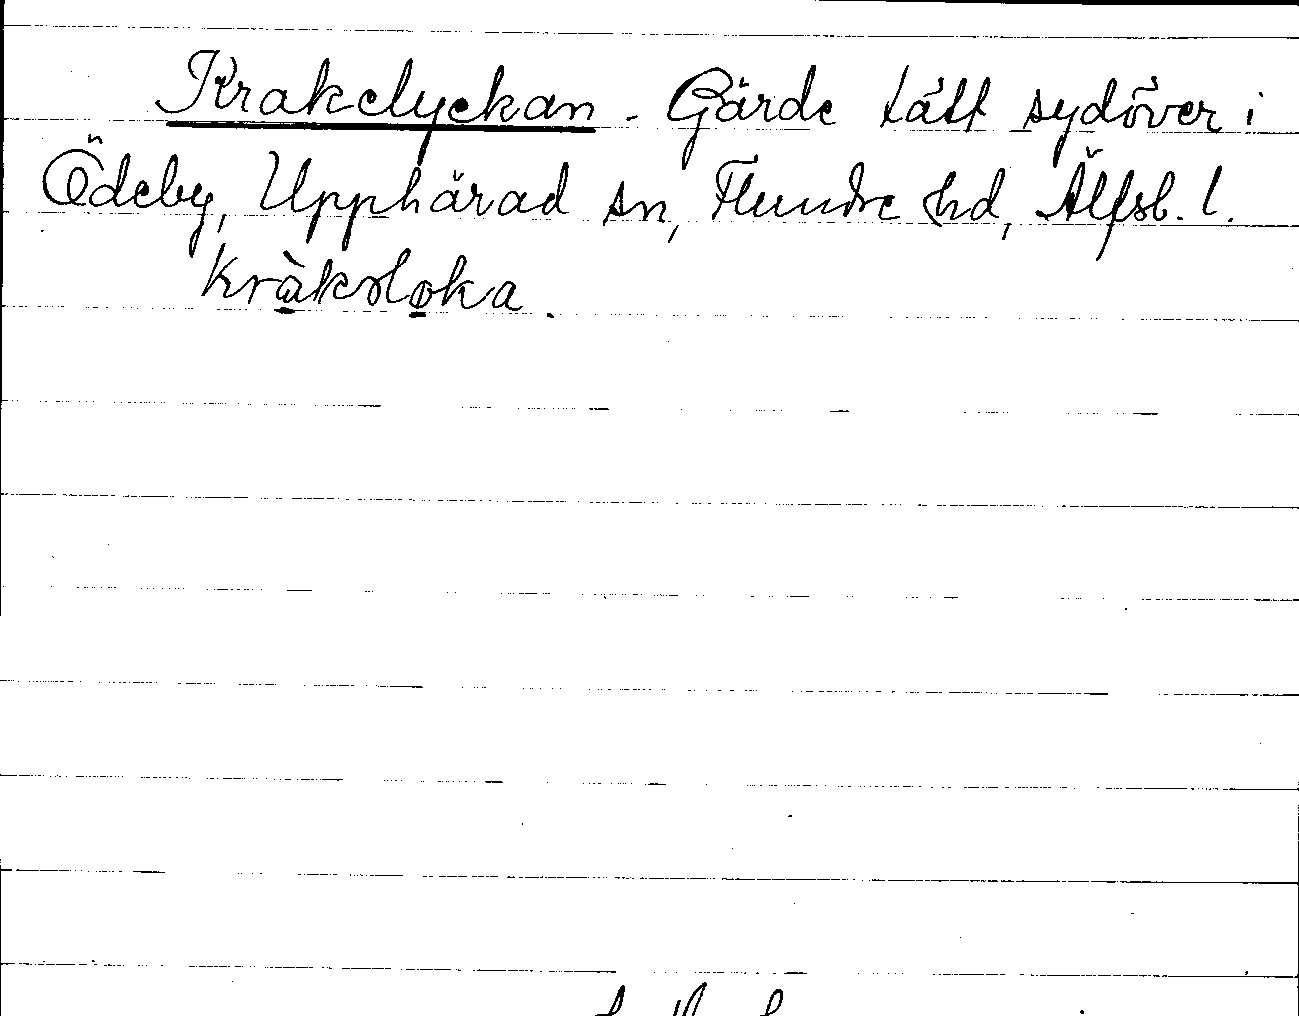 Krakelyckan - Gärde tätt sydöver i
Ödeby, Upphärad sn, Flundre hd, Älfsb. l.
kràksloka.